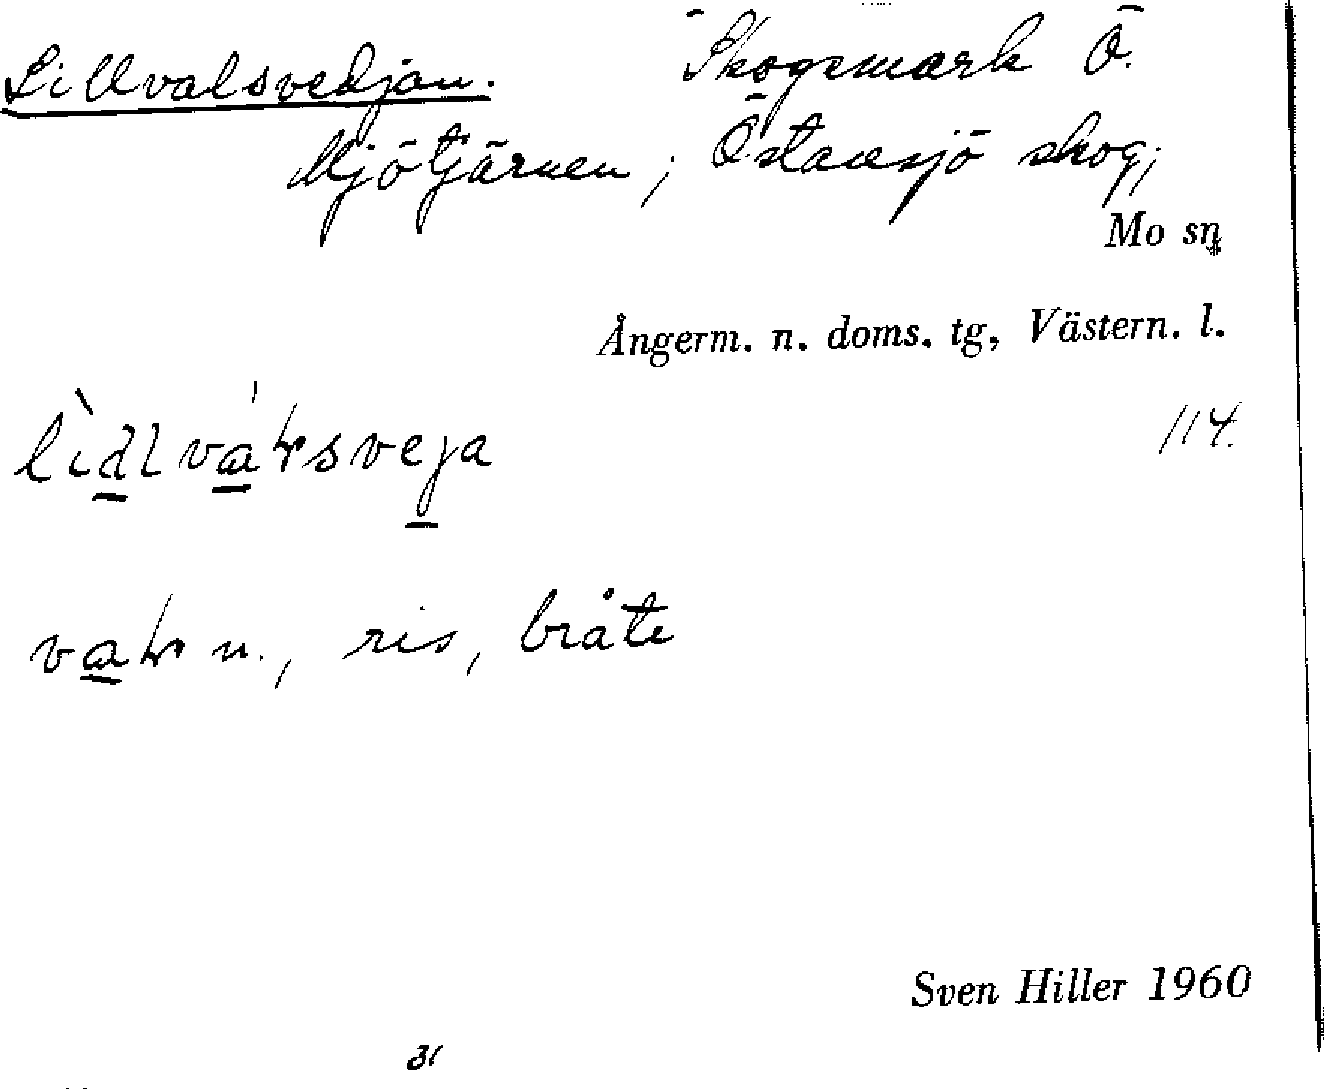 Lillvalsvedjan. Skogsmark Ö.
Mjötjärnen ; Östansjö skog;
Mo sn
Ångerm. n. doms. tg, Västern. l.
114.
n., ris, bråte
Sven Hiller 1960
31